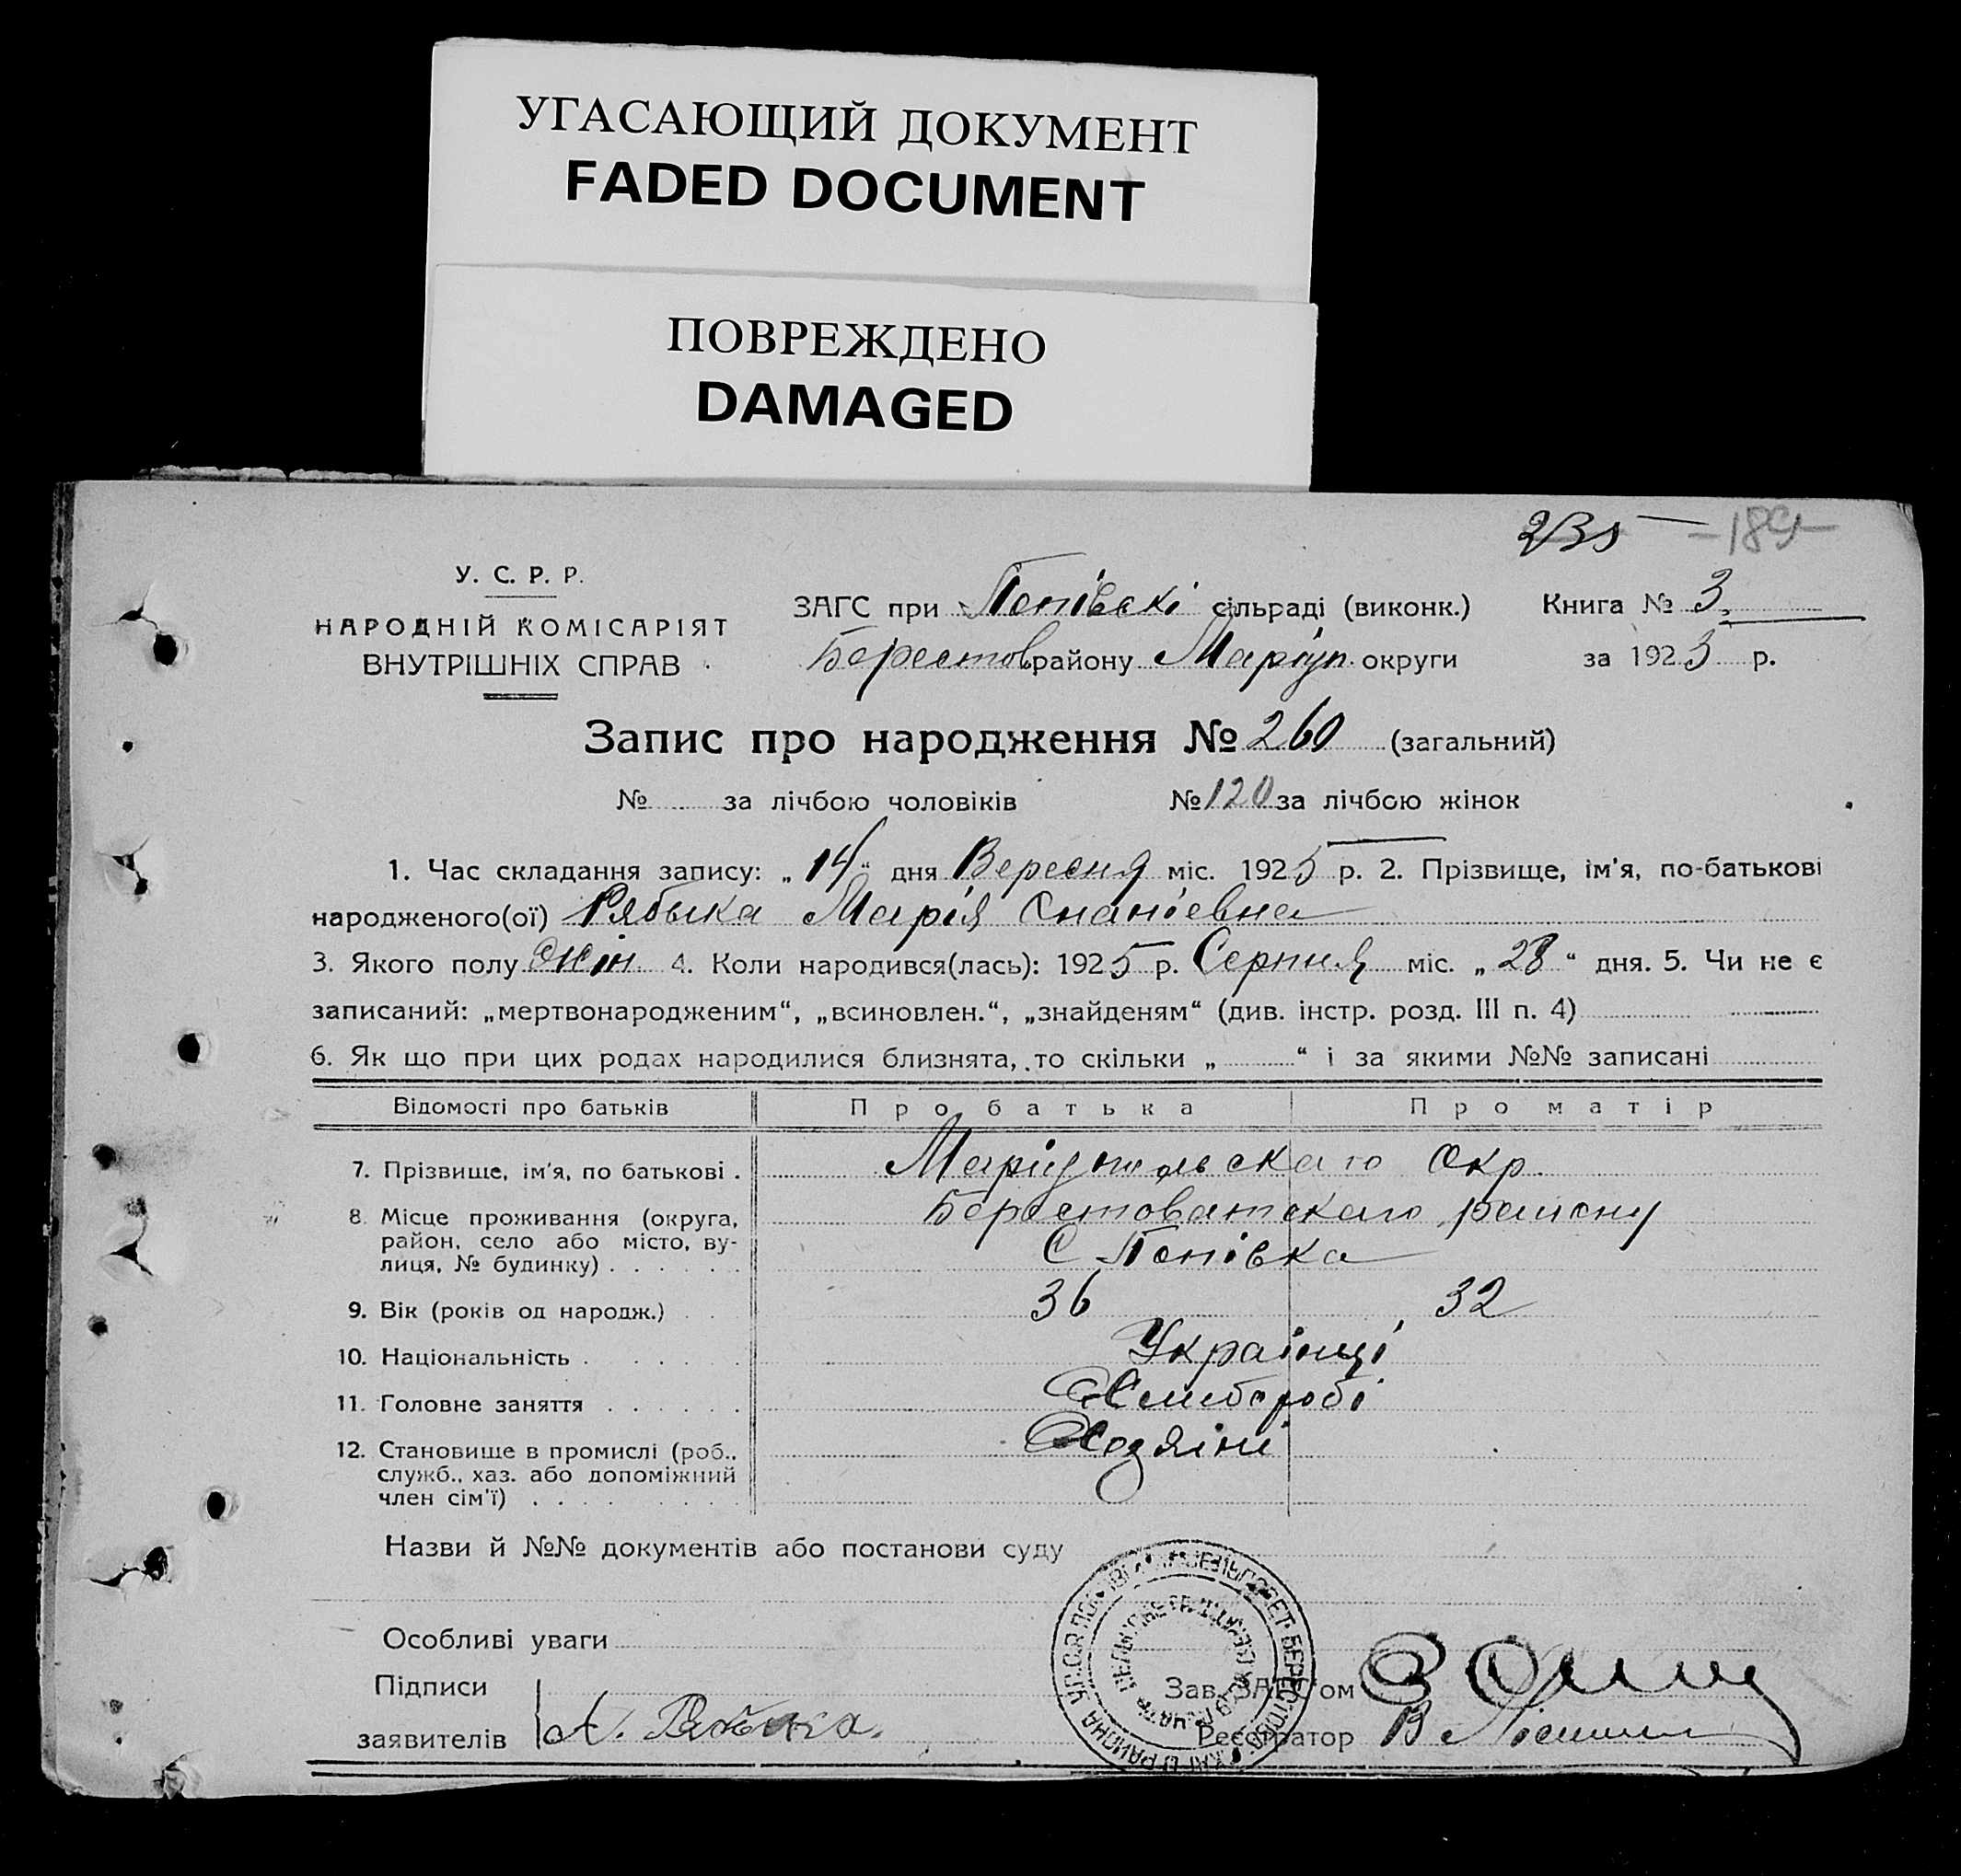 УГАСАЮЩИЙ ДОКУМЕНТ
FADED DOCUMENT
ПОВРЕЖДЕНО
DAMAGED
235 – 189 –
У. С. Р. Р.
НАРОДНІЙ КОМІСАРІЯТ
ВНУТРІШНІХ СПРАВ
ЗАГС при Попівскі сільраді (виконк.) Книга № 3
Берестов району Маріуп. округи за 1925 р.
Запис про народження № 260 (загальний)
№ за лічбою чоловіків № 120 за лічбою жінок
1. Час складання запису: „14“ дня Вересня міс. 1925 р. 2. Прізвище, ім'я, по-батькові
народженого(ої) Рябыка Марія
3. Якого полу жін. 4. Коли народився(лась): 1925 р. Серпня міс. „28“ дня. 5. Чи не є
записаний: „мертвонародженим“, „всиновлен.“, „знайденям“ (див. інстр. розд. III п. 4)
6. Як що при цих родах народилися близнята, то скільки „ “ і за якими №№ записані
Відомості про батьків Про батька Про матір
7. Прізвище, ім'я, по батькові . Маріупольскаго Окр.
8. Місце проживання (округа, Берестоватскаго району
район, село або місто, ву-
лиця, № будинку) . . . . . . С Попівка
9. Вік (років од народж.) . . 36 32
10. Національність . . . . . . Українці
11. Головне заняття . . . . . . Хлибороби
12. Становище в промислі (роб., Хозяіни
служб., хаз. або допоміжний
член сім'ї) . . . . . . . . .
Назви й №№ документів або постанови суду
Особливі уваги
Підписи Зав. ЗАГС'ом
заявителів А. Рябыка. Реєстратор В